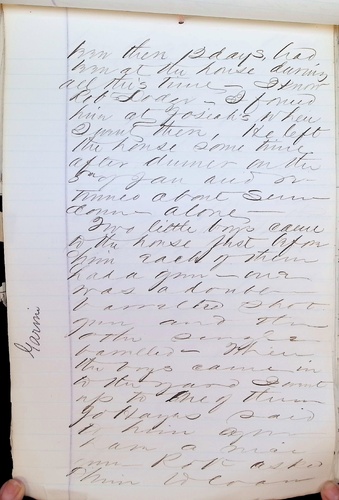 been there 3 days, had
been at the house during
all this time - I know
Rob I found
him at Josiah's when
I went there, He left
the house some time
after dinner on the
5" of Jan and re-
turned about Sun
down - alone -
Two little boys came
to the house just before
him each of them
had a gun - one
was a double
barreled shot
gun and the
other single
barreled - When
the boys came in
to the yard I went
up to one of them
said
to him
have a
gun Rob asked
them
Garvin